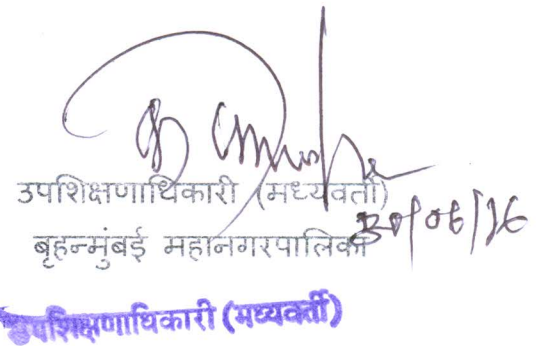 उपशिक्षणाधिकारी (मध्यवर्ती)
बृहन्मुंबई महानगरपालिका
30/06/26
उपशिक्षणाधिकारी (मध्यवर्ती)